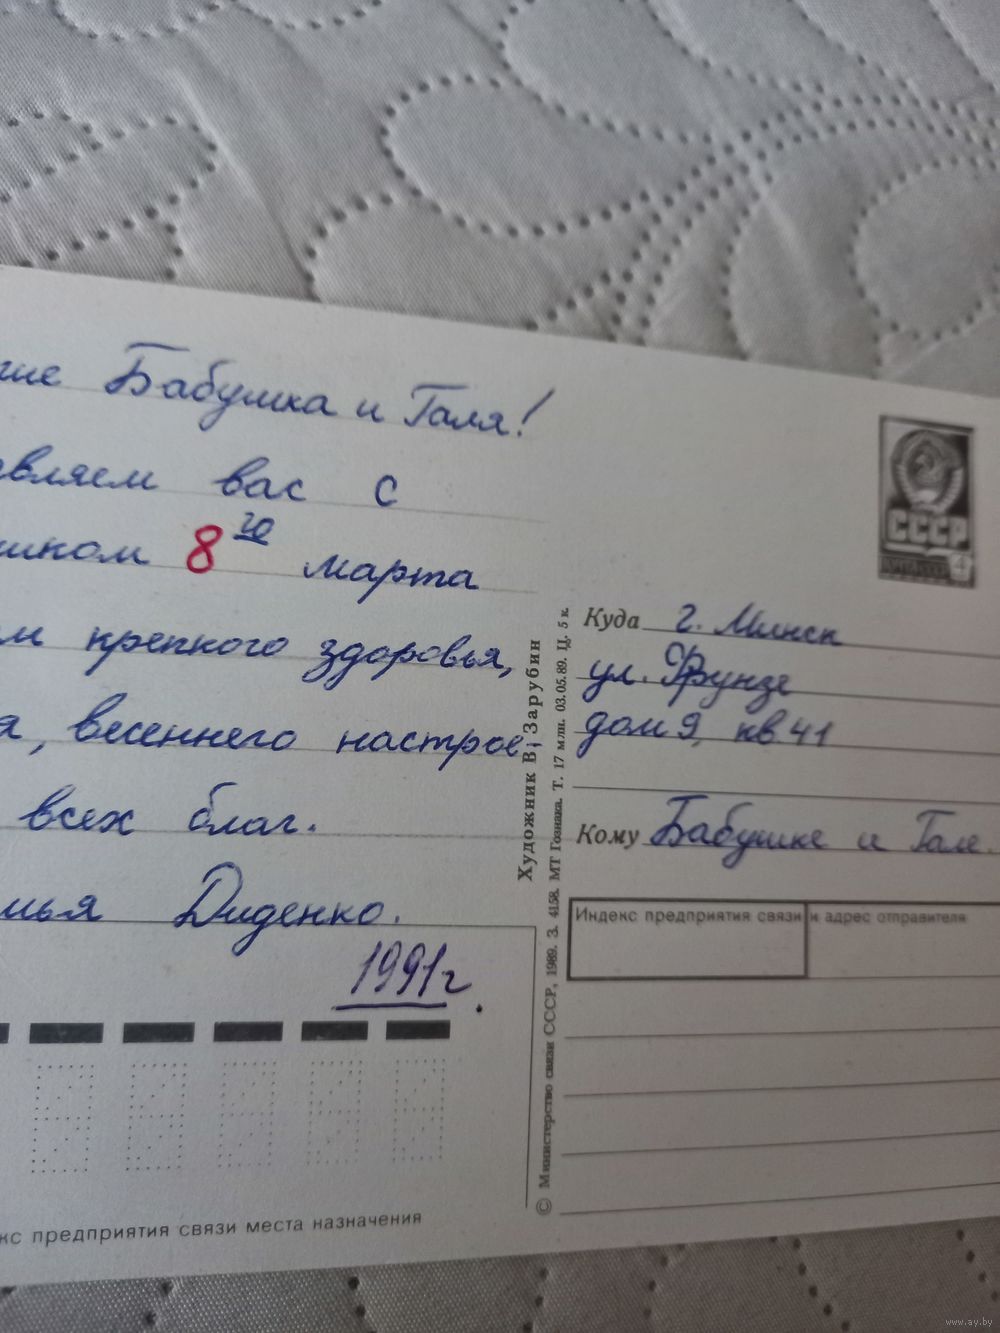 шие Бабушка и Галя!
вляем вас с
иком 8го марта
м крепкого здоровья,
а, весеннего настрое
всех благ.
мья Диденко.
1991г.
кс предприятия связи места назначения
Художник В. Зарубин
© Министерство связи СССР, 1989. З. 4158. МТ Гознака. Т. 17 млн. 03.05.89. Ц. 5 к.
СССР
4
Куда г. Минск
ул. Фрунзе
дом 9, кв. 41
Кому Бабушке и Гале.
Индекс предприятия связи и адрес отправителя
www.ay.by